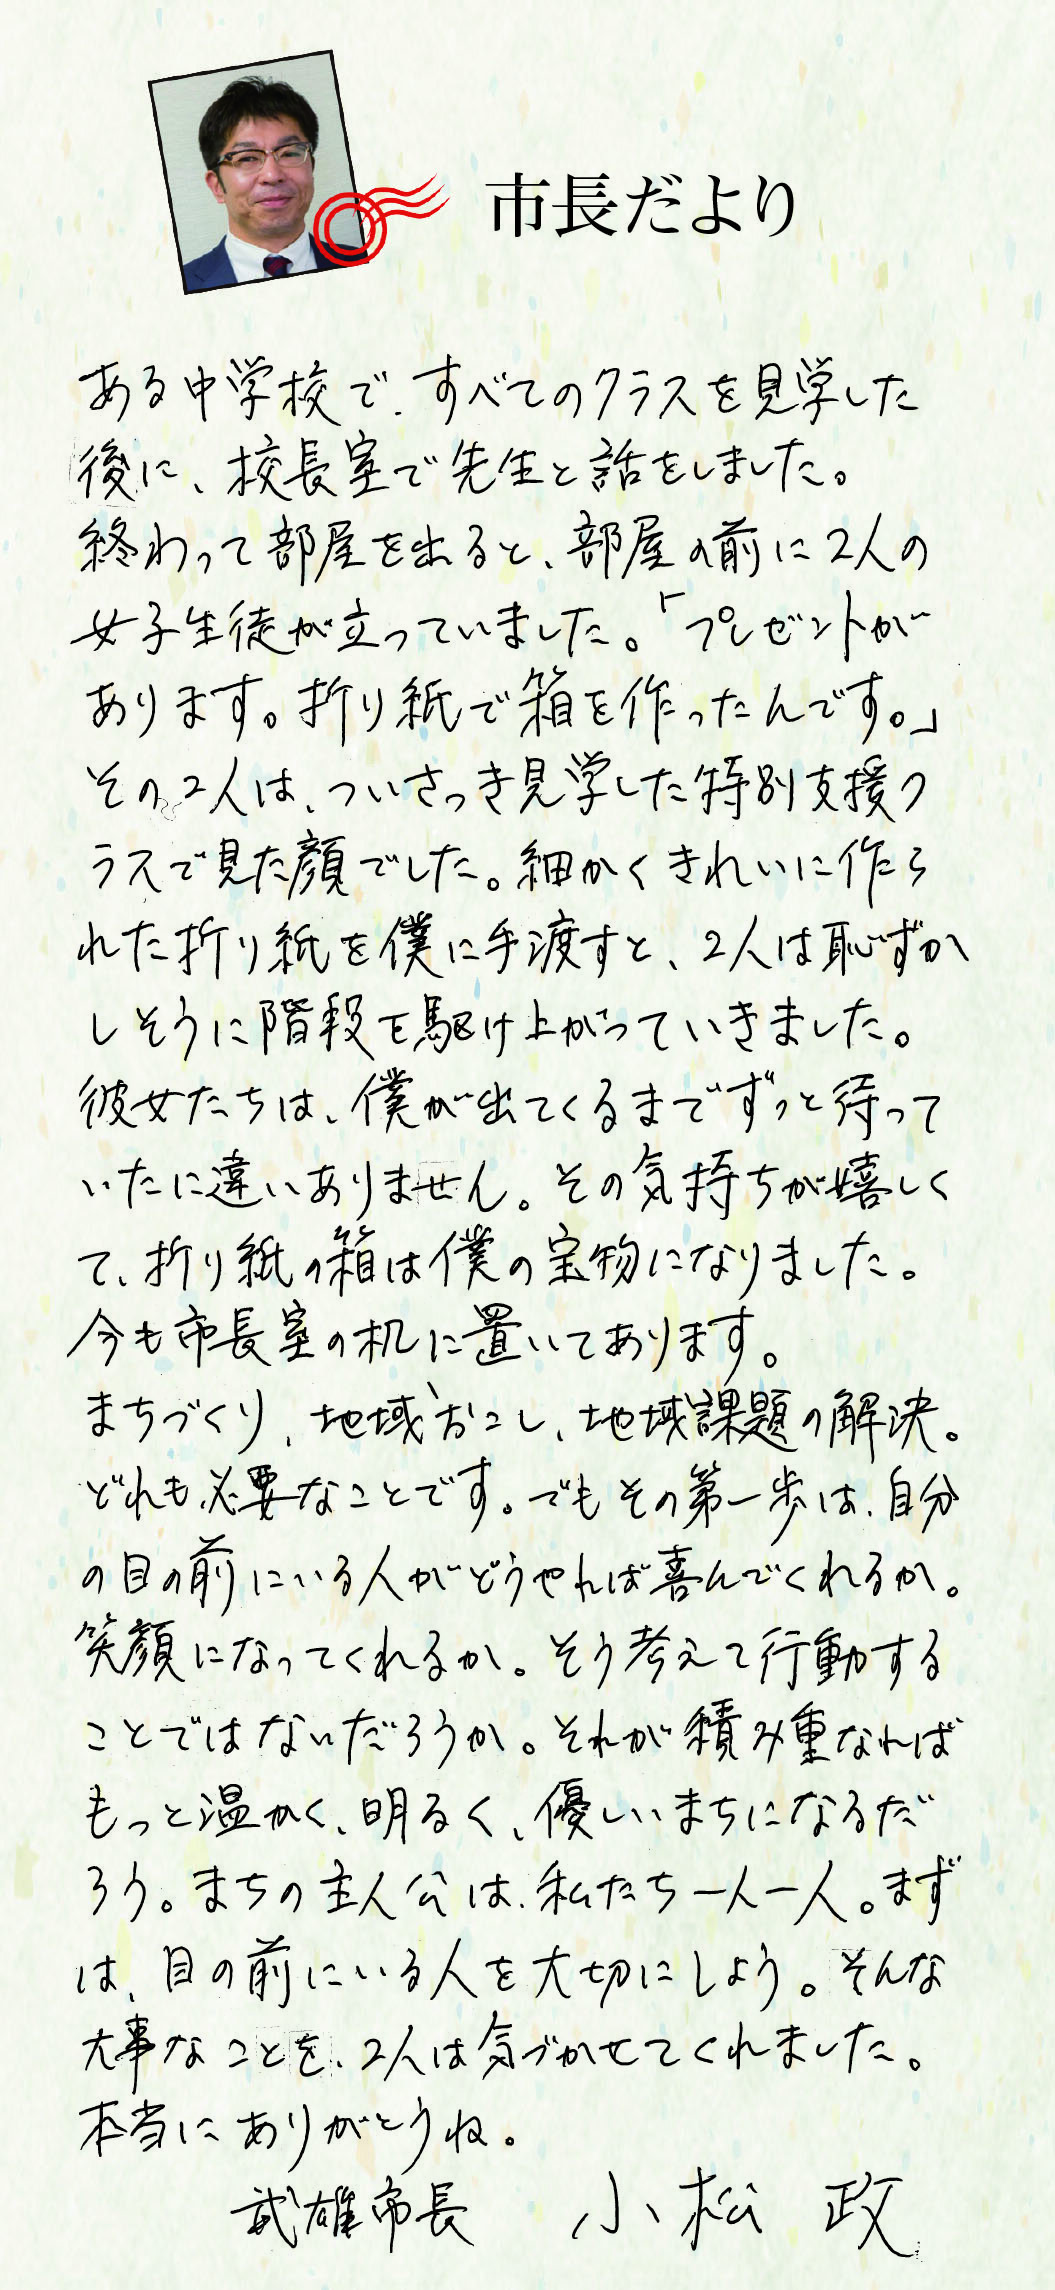 市長だより
ある中学校で、すべてのクラスを見学した
後に、校長室で先生と話をしました。
終わって部屋を出ると、部屋の前に2人の
女子生徒が立っていました。「プレゼントが
あります。折り紙で箱を作ったんです。」
その2人は、ついさっき見学した特別支援ク
ラスで見た顔でした。細かくきれいに作ら
れた折り紙を僕に手渡すと、2人は恥ずか
しそうに階段を駆け上がっていきました。
彼女たちは、僕が出てくるまでずっと待って
いたに違いありません。その気持ちが嬉しく
て、折り紙の箱は僕の宝物になりました。
今も市長室の机に置いてあります。
まちづくり、地域おこし、地域課題の解決。
どれも必要なことです。でもその第一歩は、自分
の目の前にいる人がどうやれば喜んでくれるか。
笑顔になってくれるか。そう考えて行動する
ことではないだろうか。それが積み重なれば
もっと温かく、明るく、優しいまちになるだ
ろう。まちの主人公は、私たち一人一人。まず
は、目の前にいる人を大切にしよう。そんな
大事なことを、2人は気づかせてくれました。
本当にありがとうね。
武雄市長 小松 政